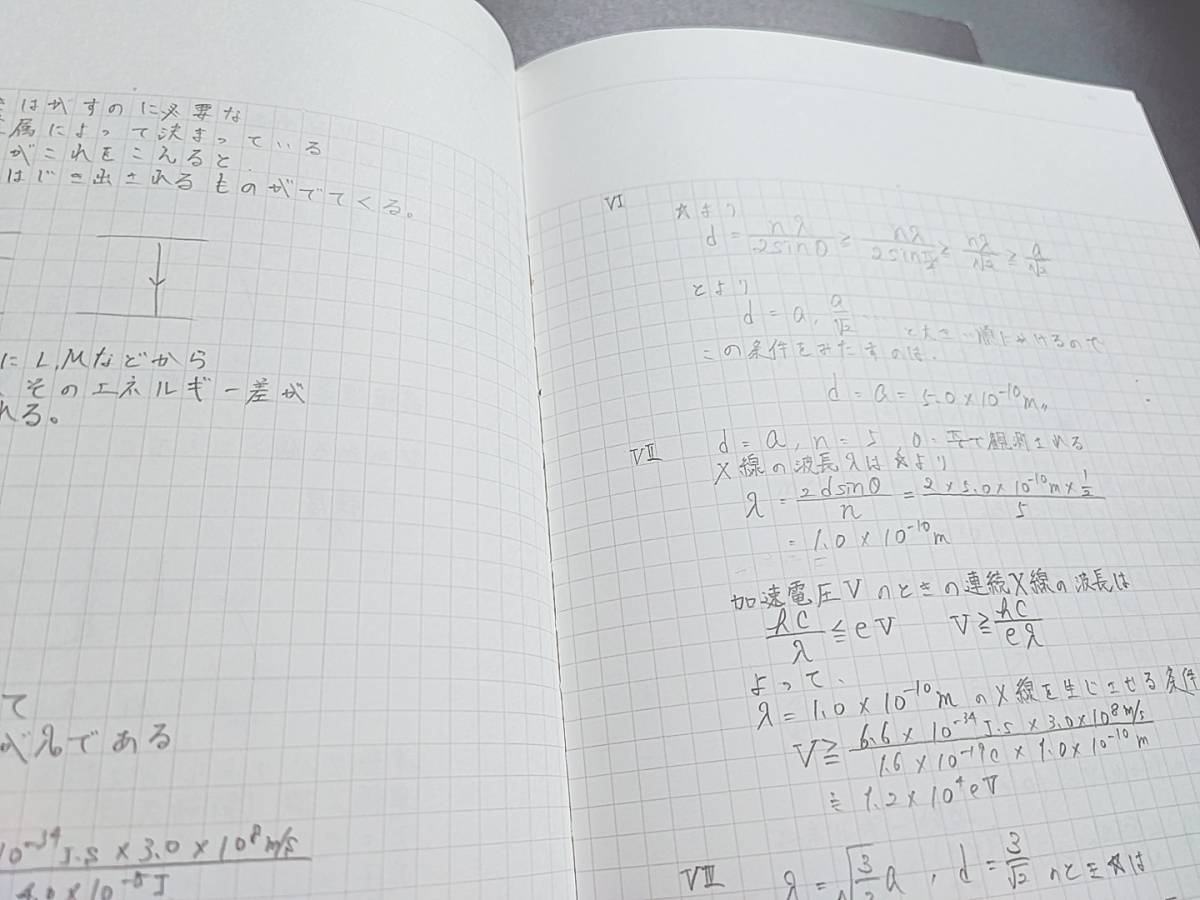 はがすのに必要な
属によって決まっている
がこれをこえると
はじき出されるものがでてくる。
にL,Mなどから
そのエネルギー差が
れる。
て
がλ₀である
10⁻³⁴J.S × 3.0 × 10⁸m/s
10⁻⁵J
VI ☆より
d = nλ/2sinθ ≥ nλ/2sin ≥ nλ/√2 ≥ a/√2
とより
d = a, a/√2 … と大きい順にかけるので
この条件をみたすのは、
d = a = 5.0×10⁻¹⁰m〃
VII d = a, n = 5, 観測される
X線の波長λは☆より
λ = 2dsinθ/n = 2×5.0×10⁻¹⁰m×1/2/5
= 1.0×10⁻¹⁰m
加速電圧Vのときの連続X線の波長は
hc/λ ≦ eV V ≧ hc/eλ
よって、
λ = 1.0×10⁻¹⁰mのX線を生じさせる条件
V ≧ 6.6×10⁻³⁴J.S×3.0×10⁸m/s/1.6×10⁻¹⁹C×1.0×10⁻¹⁰m
≒ 1.2×10⁴eV
VIII λ = √3/2a, d = 3/√2 のときは